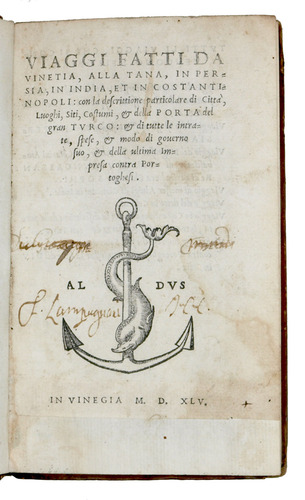 VIAGGI FATTI DA
VINETIA, ALLA TANA, IN PER=
SIA, IN INDIA, ET IN COSTANTI
NOPOLI: con la descrittione particolare di Città,
Luoghi, Siti, Costumi, & della PORTA del
gran TVRCO: & di tutte le intra-
te, spese, & modo di governo
suo, & della ultima Im
presa contra Por
toghesi.
AL DVS
IN VINEGIA M. D. XLV.